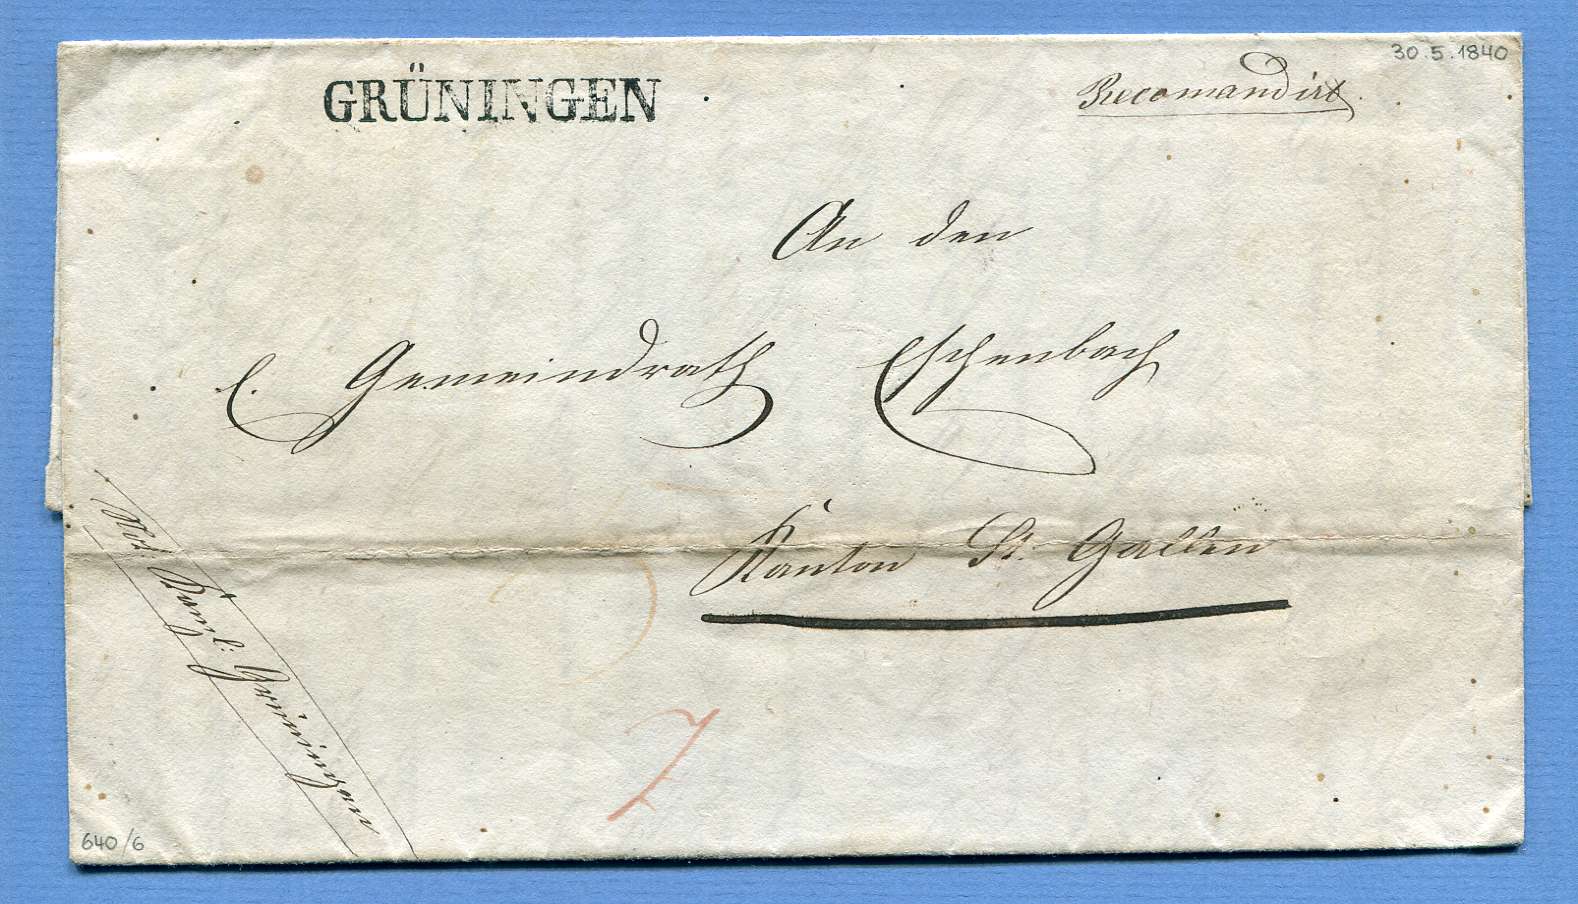 30.5.1840
GRÜNINGEN
Recomandirt
An den
l. Gemeindrath Eschenbach
Kanton St. Gallen
Not Canzl: Grüningen
7
640/6